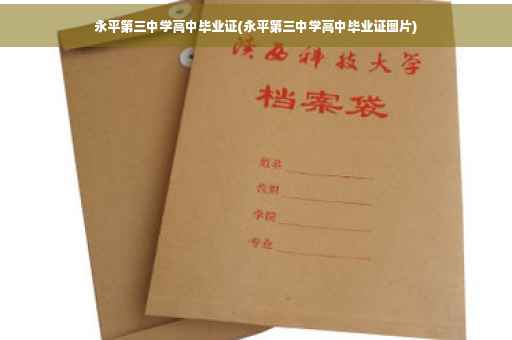 永平第三中学高中毕业证(永平第三中学高中毕业证图片)
陕西科技大学
档案袋
姓名
学院
专业